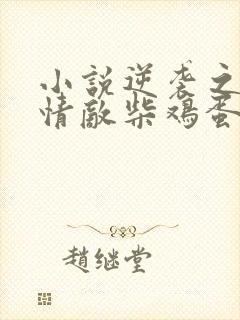 小説逆袭之
情敵柴鸡蛋
趙继堂